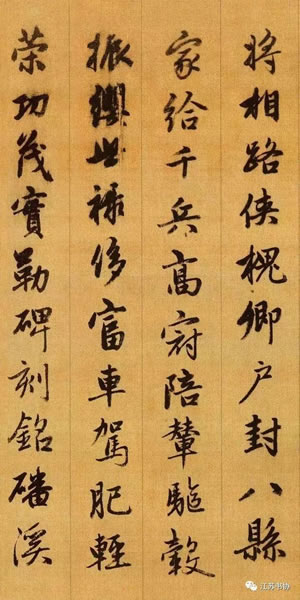 将相路侠槐卿户封八縣
家给千兵高冠陪輦驅轂
振纓世禄侈富車駕肥輕
荣功茂實勒碑刻銘磻溪
江苏书协